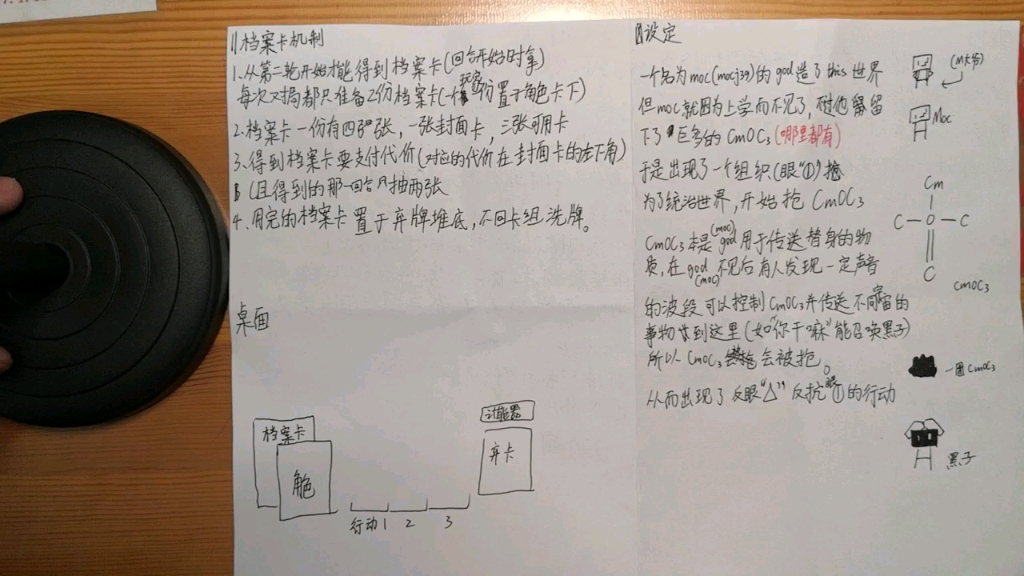 档案卡机制
1.从第二轮开始才能得到档案卡(回合开始时拿)
每次对局都只准备2份档案卡(一份置于角色卡下)
2.档案卡一份有四张,一张封面卡,三张可用卡
3.得到档案卡要支付代价(对应的代价在封面卡的左下角)
且得到的那一回合只抽两张
4.用完的档案卡置于弃牌堆底,不回卡组洗牌。
桌面
档案卡
角色
行动1 2 3
计能器
弃卡
设定
一个名为moc(mocj39)的god造了this世界
但moc就因为上学而不见了,但他留
下了巨多的CmOC3(哪里都有)
于是出现了一个组织(眼"①")
为了统治世界,开始抢CmOC3
CmOC3本是god(moc)用于传送替身的物
质,在god(moc)不见后有人发现一定声音
的波段可以控制CmOC3并传送不同宙的
事物到这里(如"你干嘛"能召唤黑子)
所以CmOC3会被抢。
从而出现了反眼"△"反抗眼①的行动
Moc
Cm
C—O—C
C
CmOC3
一团CmOC3
黑子